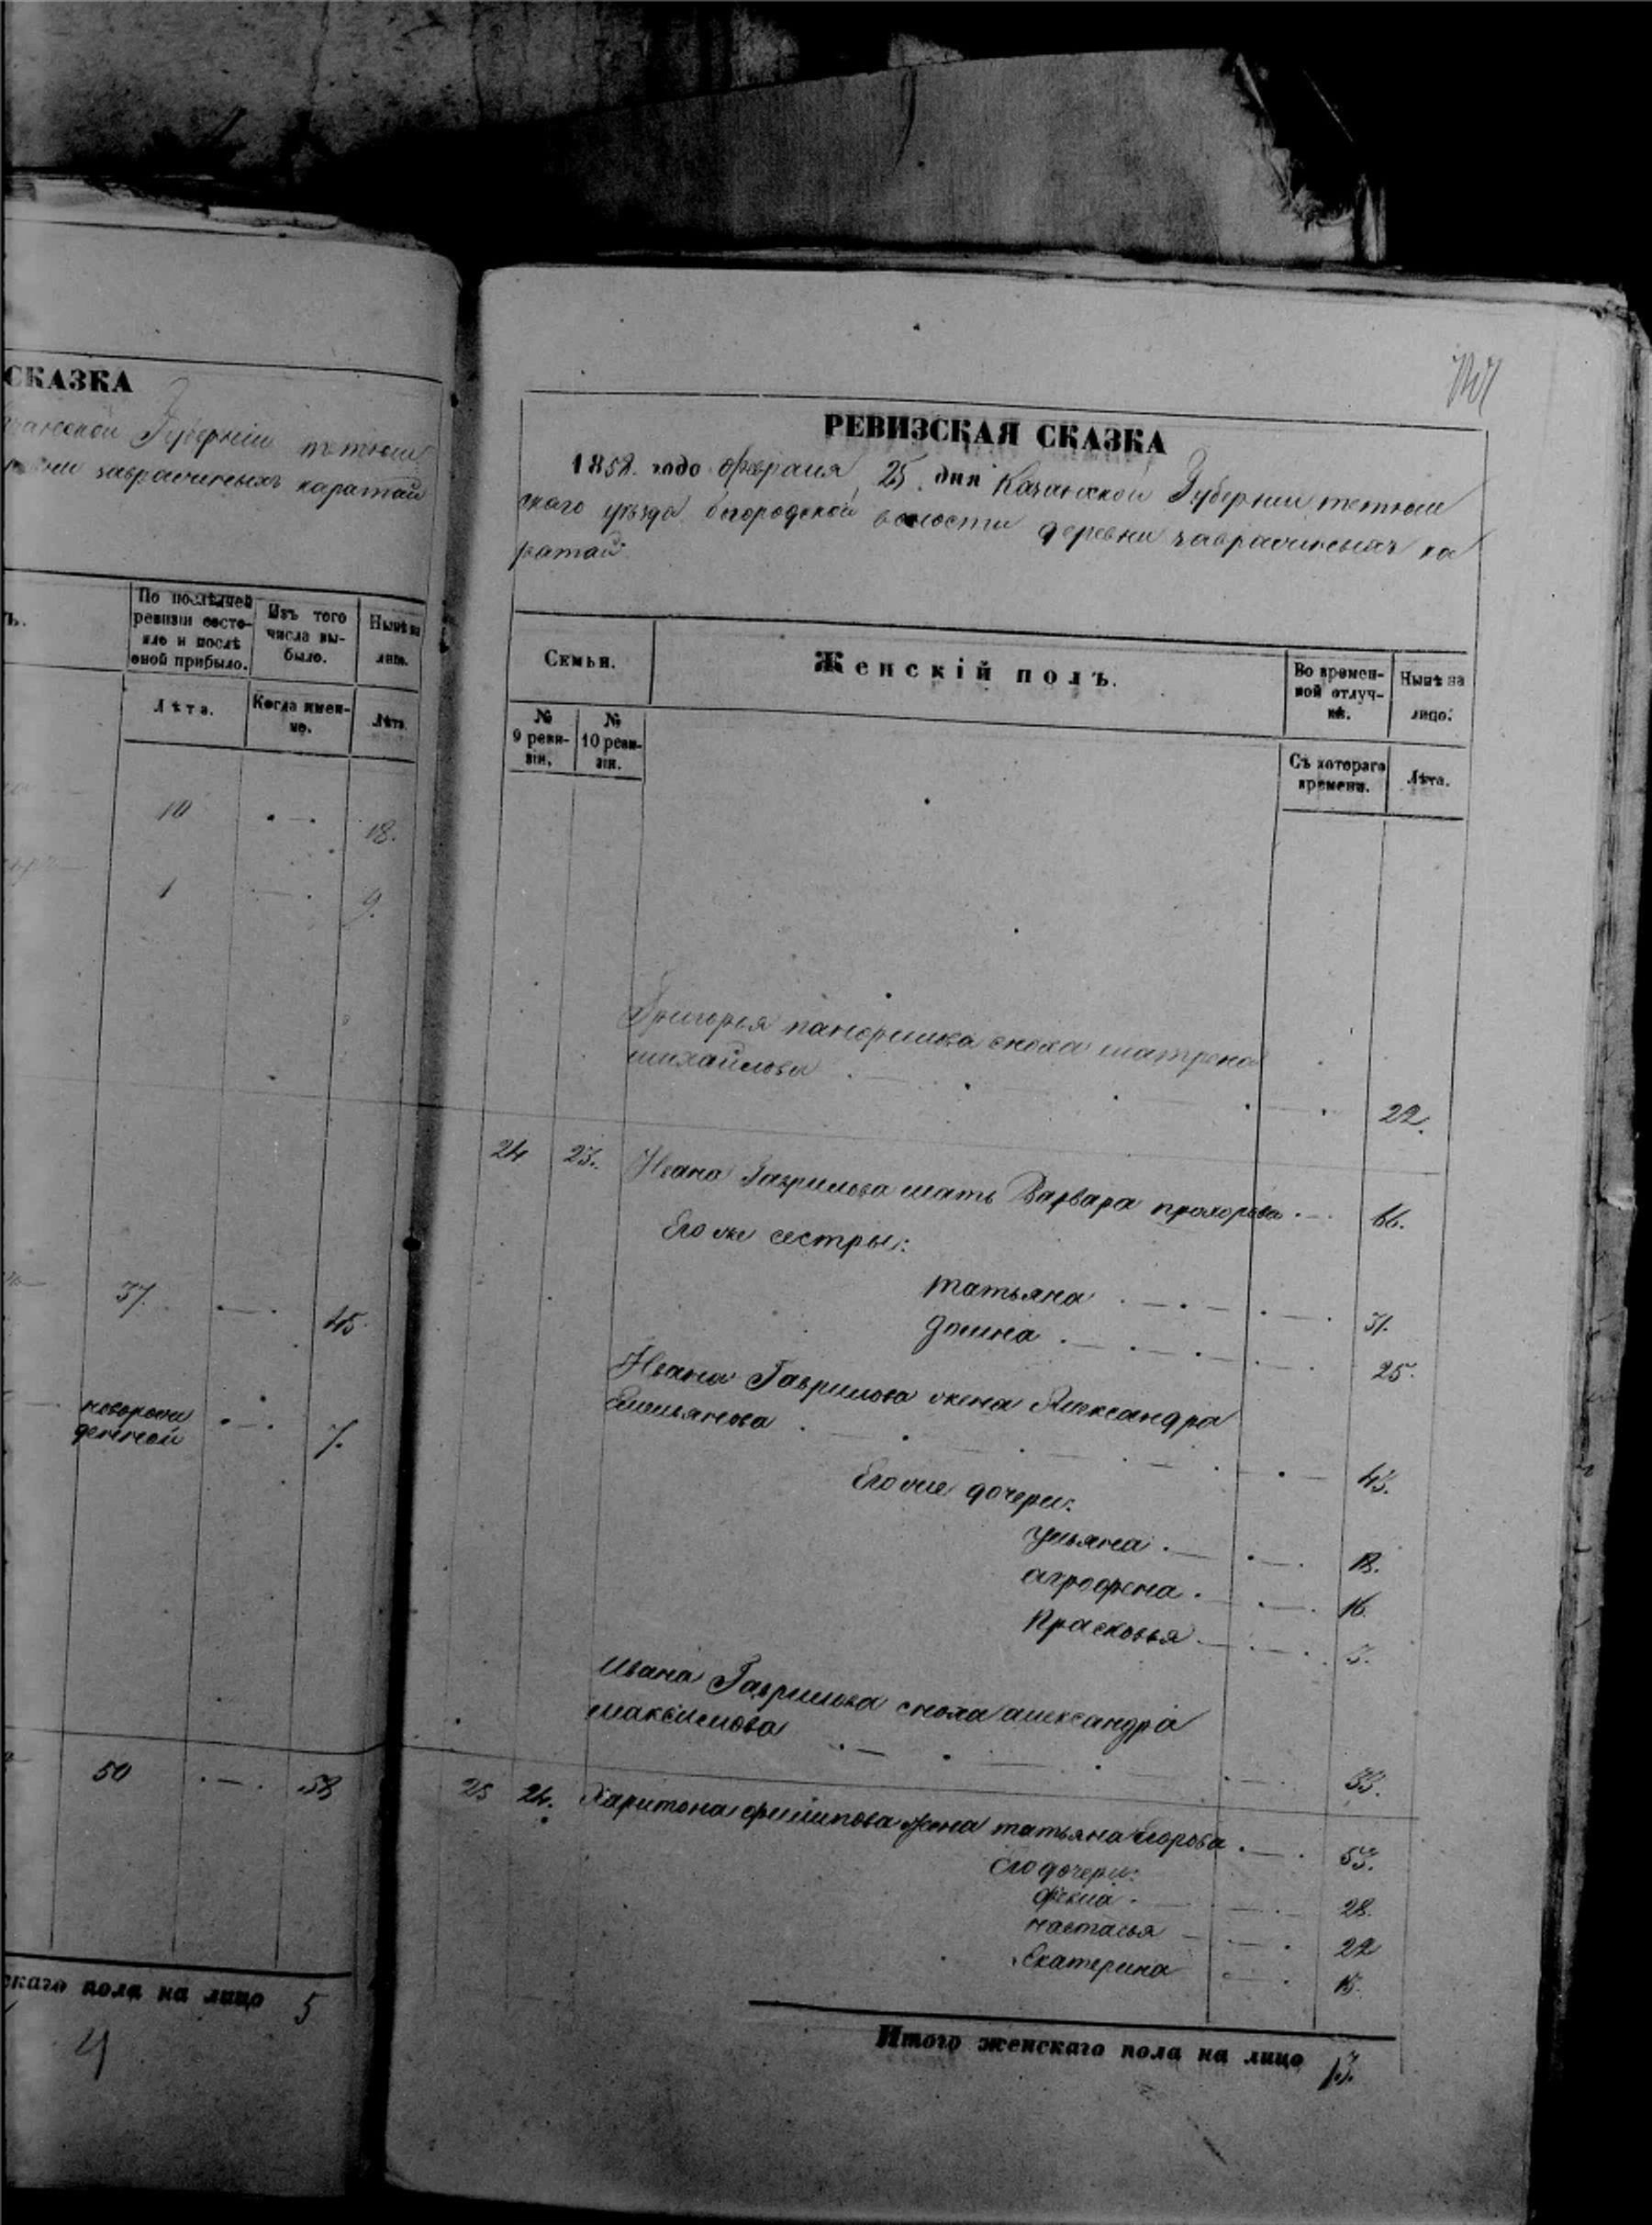 СКАЗКА
Губернии тетюш
заврашныхъ каратай
По послѣдней
ревизіи состо-
яло и послѣ
оной прибыло.
Изъ того
числа вы-
было.
Нынѣ на
лицо.
Лѣта.
Когда имен-
но.
Лѣта.
10 18.
1 9.
37. 45.
новорож
денной 7.
50 58
скаго пола на лицо 5
РЕВИЗСКАЯ СКАЗКА
1858. года февраля 25. дня Казанской Губернии тетюш
скаго уѣзда богородской волости деревни заврашныхъ ка
ратай.
Семьи.
Женскій полъ.
Во времен-
ной отлуч-
кѣ.
Нынѣ на
лицо.
№
9 реви-
зіи.
№
10 реви-
зіи.
Съ котораго
времени.
Лѣта.
Григорья сноха матрена
михайлова 22.
24 23. Ивана Гаврилова мать Варвара прохорова 66.
Его же сестры:
татьяна 31.
домна 25.
Ивана Гаврилова жена Александра
Емельянова 43.
Его же дочери:
ульяна 18.
аграфена 16.
Прасковья 3.
Ивана Гаврилова сноха александра
максимова 33.
25 24. Харитона филипова жена татьяна Егорова 53.
Его дочери:
фекла 28.
настасья 22
Екатерина 15.
Итого женскаго пола на лицо 13.